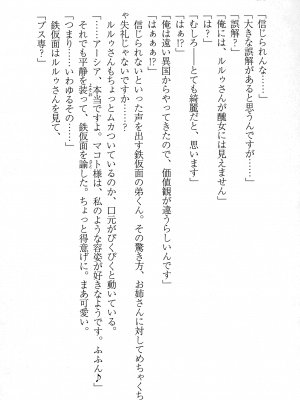 「信じられんな……」
「大きな誤解があると思うんですが……」
「誤解？」
「俺には、ルルゥさんが醜女には見えません」
「は？」
「むしろ――とても綺麗だと、思います」
「はぁ!?」
「俺は遠い異国からやってきたので、価値観が違うらしいんです」
「はぁぁぁ!?」
信じられないといった声を出す鉄仮面の弟くん。その驚き方、お姉さんに対してめちゃくち
ゃ失礼じゃないですか……？
ルルゥさんもちょっとムカついているのか、口元がぴくぴくと動いている。
「……アーシア、本当ですよ。マコト様は、私のような容姿が好きなようです。ふふん♪」
それでも平静を装って、鉄仮面を諭した。ちょっと得意げに。まあ可愛い。
鉄仮面はルルゥさんを見て、
「つまり……いわゆるその……」
「ブス専？」